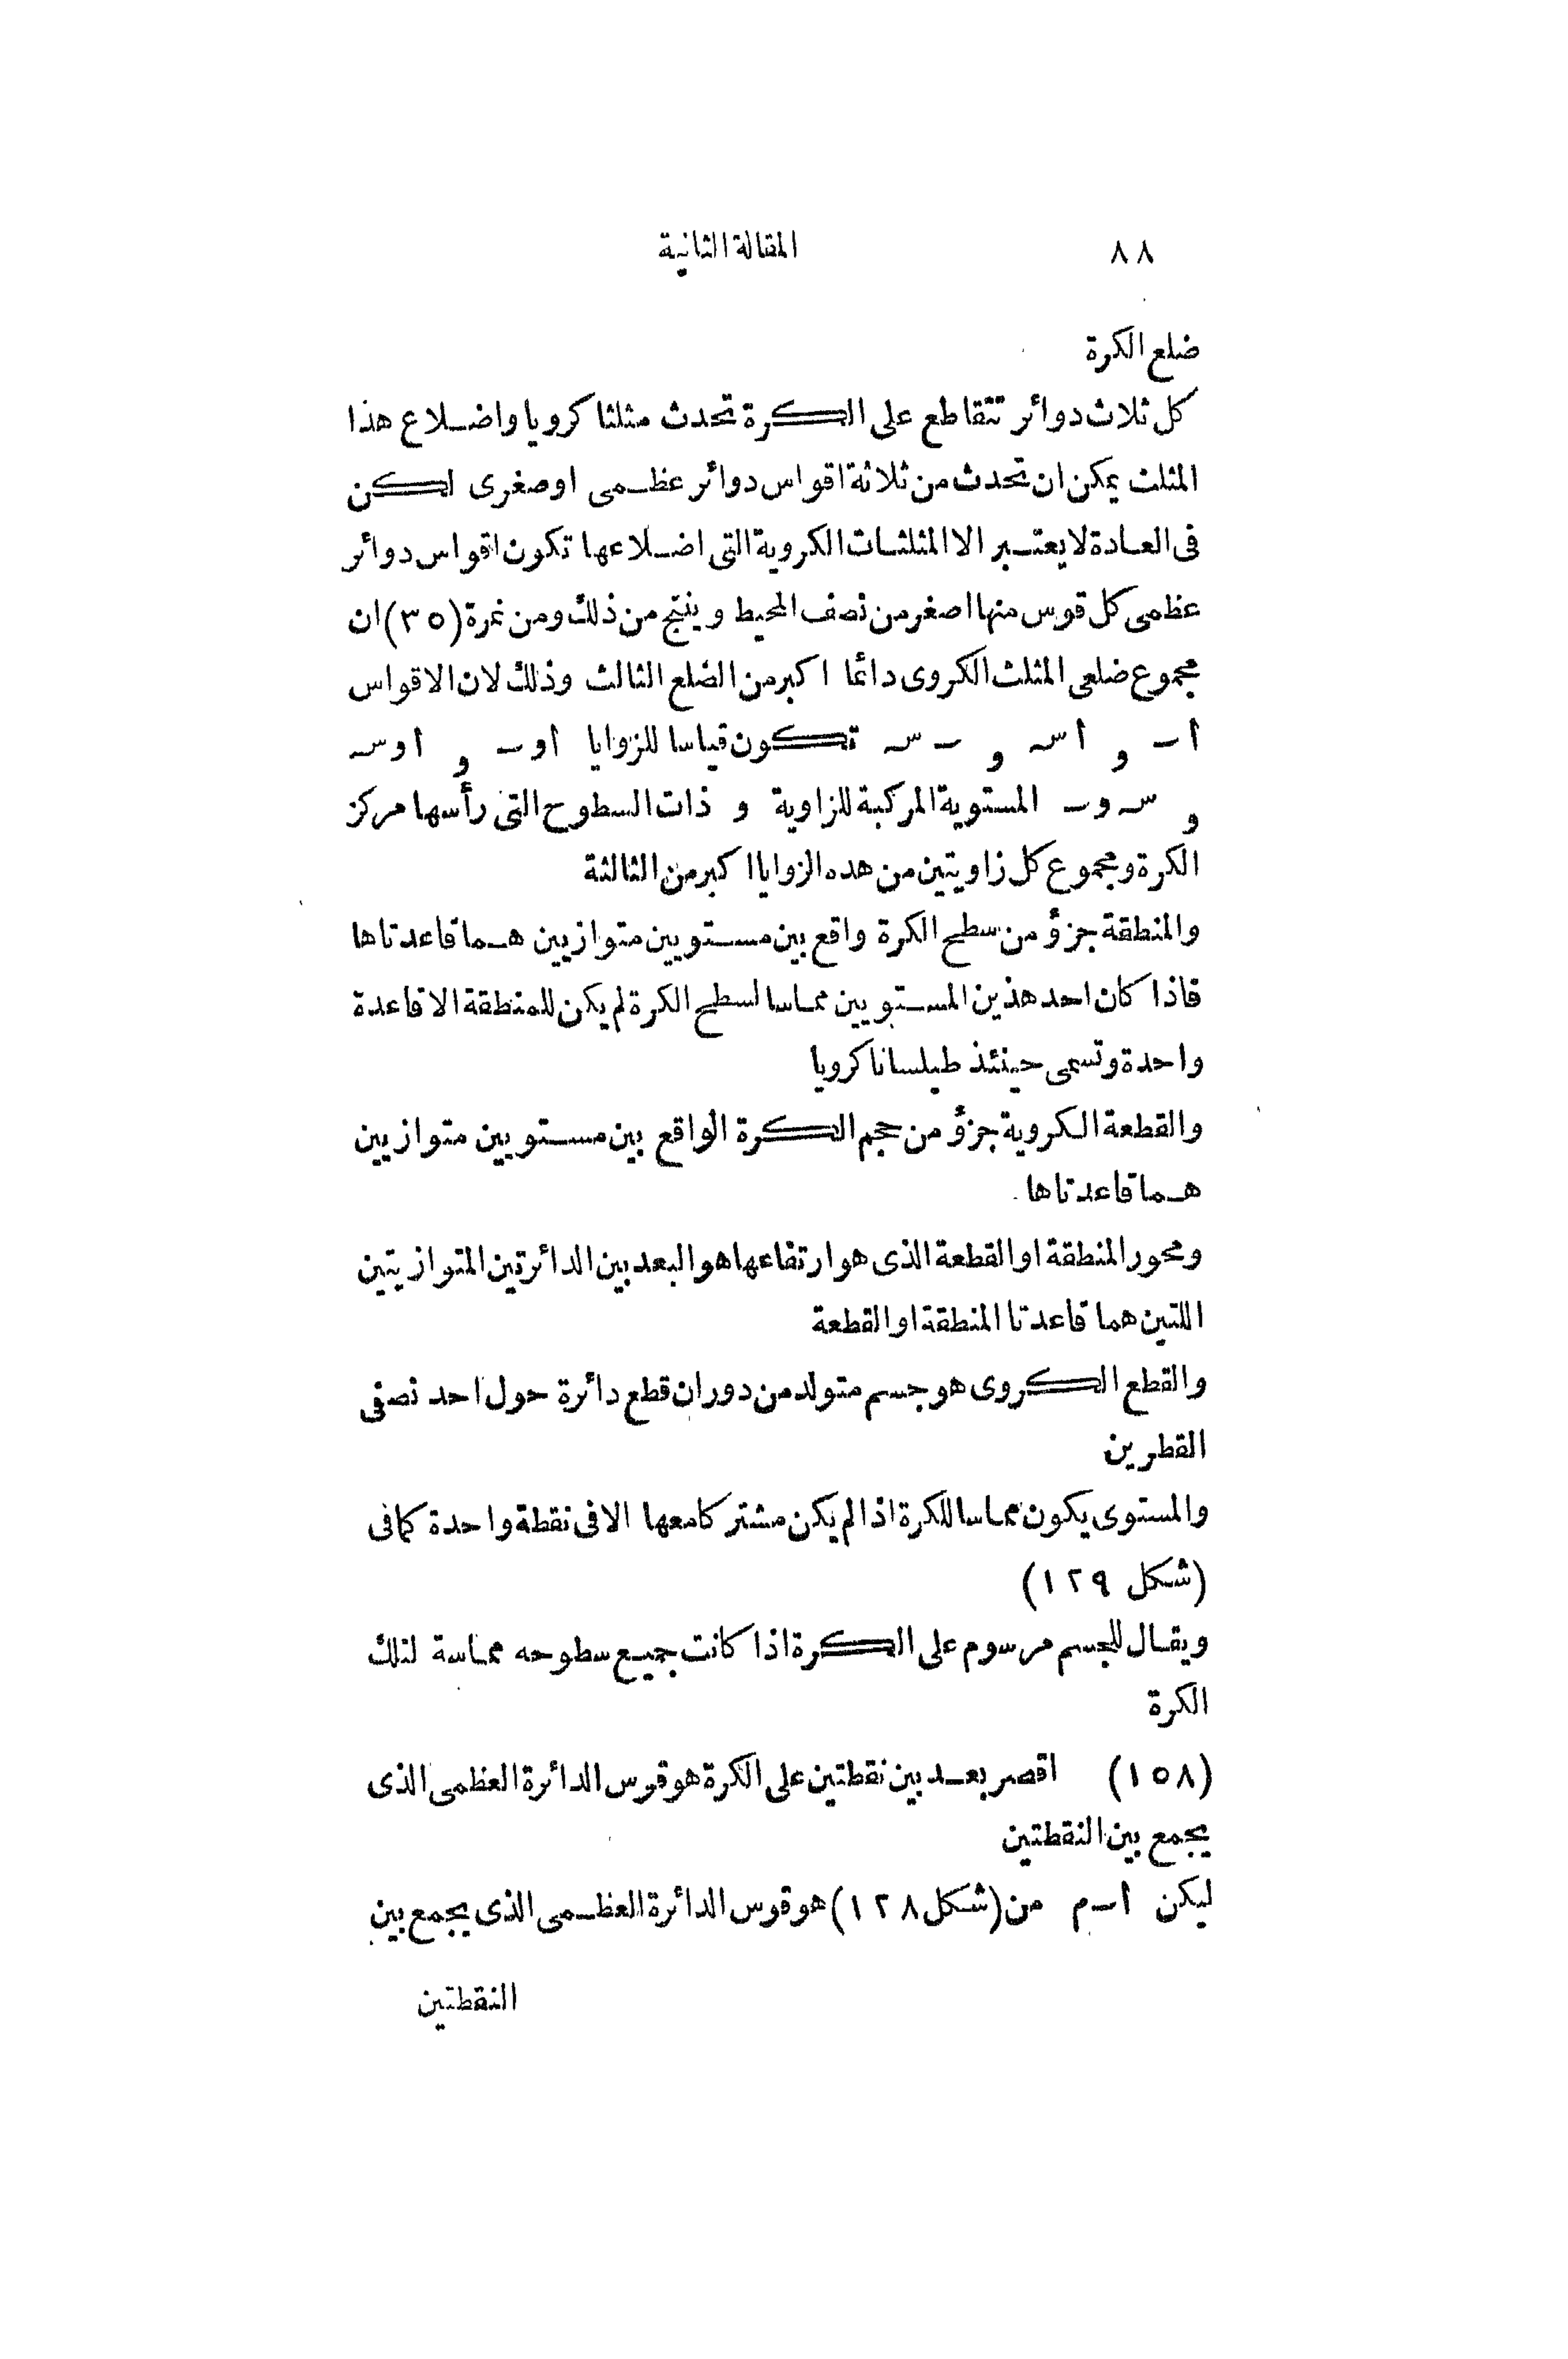 ٨٨ المقالة الثانية
ضلع الكرة
كل ثلاث دوائر تتقاطع على الكرة تحدث مثلثا كرويا واضلاع هذا
المثلث يمكن ان تحدث من ثلاثة اقواس دوائر عظمى اوصغرى لكن
فى العادة لا يعتبر الا المثلثات الكروية التى اضلاعها تكون اقواس دوائر
عظمى كل قوس منها اصغر من نصف المحيط وينتج من ذلك ومن نمرة (٣٥) ان
مجموع ضلعى المثلث الكروى دائما اكبر من الضلع الثالث وذلك لان الاقواس
أ ـ و أ سـ و ـ سـ تكون قياسا للزوايا أوـ و أوسـ
و سـ وـ المستوية المركبة للزاوية و ذات السطوح التى رأسها مركز
الكرة ومجموع كل زاويتين من هده الزوايا اكبر من الثالثة
والمنطقة جزؤ من سطح الكرة واقع بين مستويين متوازيين هما قاعدتاها
فاذا كان احد هذين المستويين مماسا لسطح الكرة لم يكن للمنطقة الا قاعدة
واحدة وتسمى حينئذ طيلسانا كرويا
والقطعة الكروية جزؤ من حجم الكرة الواقع بين مستويين متوازيين
هما قاعدتاها
ومحور المنطقة او القطعة الذى هو ارتفاعها هو البعد بين الدائرتين المتوازيتين
اللتين هما قاعدتا المنطقة او القطعة
والقطع الكروى هو جسم متولد من دوران قطع دائرة حول احد نصفى
القطرين
والمستوى يكون مماسا للكرة اذا لم يكن مشتركا معها الا فى نقطة واحدة كما فى
(شكل ١٢٩)
ويقال للجسم مرسوم على الكرة اذا كانت جميع سطوحه مماسة لتلك
الكرة
(١٥٨) اقصر بعد بين نقطتين على الكرة هو قوس الدائرة العظمى الذى
يجمع بين النقطتين
ليكن أ ـ م من (شكل ١٢٨) هو قوس الدائرة العظمى الذى يجمع بين
النقطتين